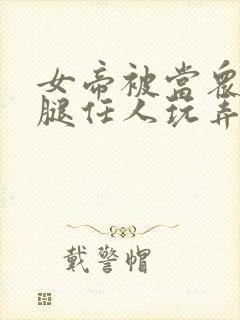 女帝被當衆
腿任人玩弄
戴警帽